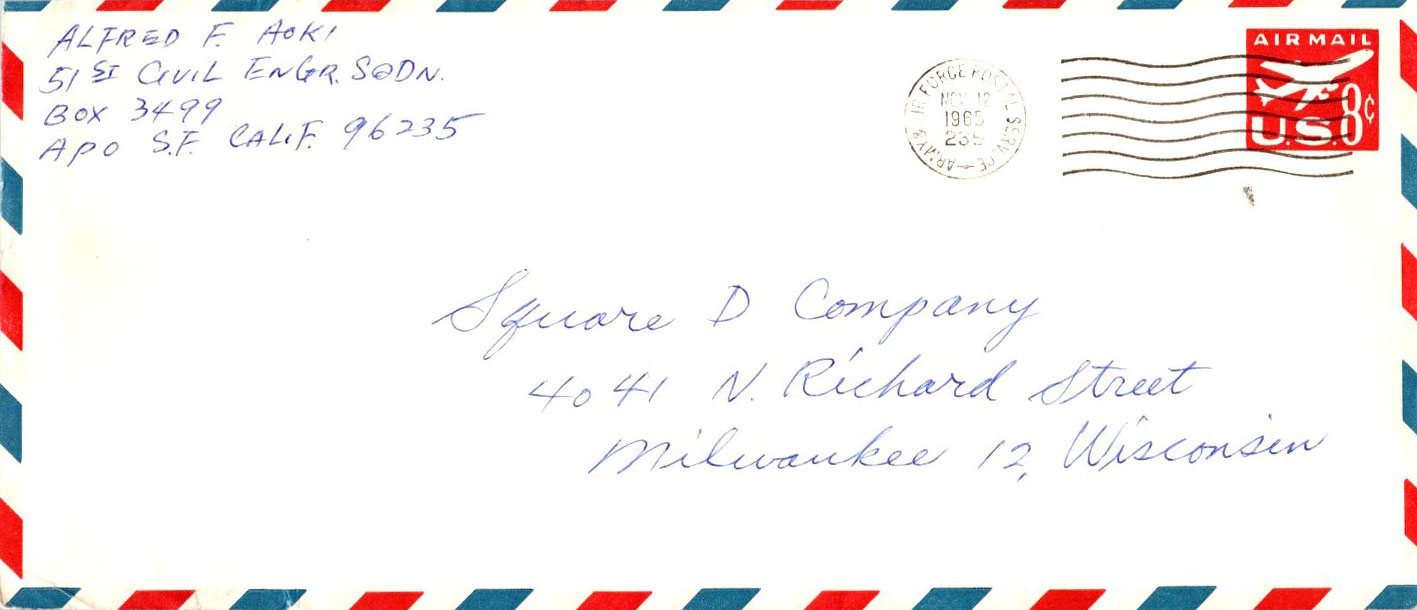 ALFRED F. AOKI
51ST CIVIL ENGR. SQDN.
BOX 3499
APO S.F. CALIF. 96235
ARMY & AIR FORCE POSTAL SERVICE
NOV 12
1965
235
AIR MAIL
U.S. 8¢
Square D Company
4041 N. Richard Street
Milwaukee 12, Wisconsin